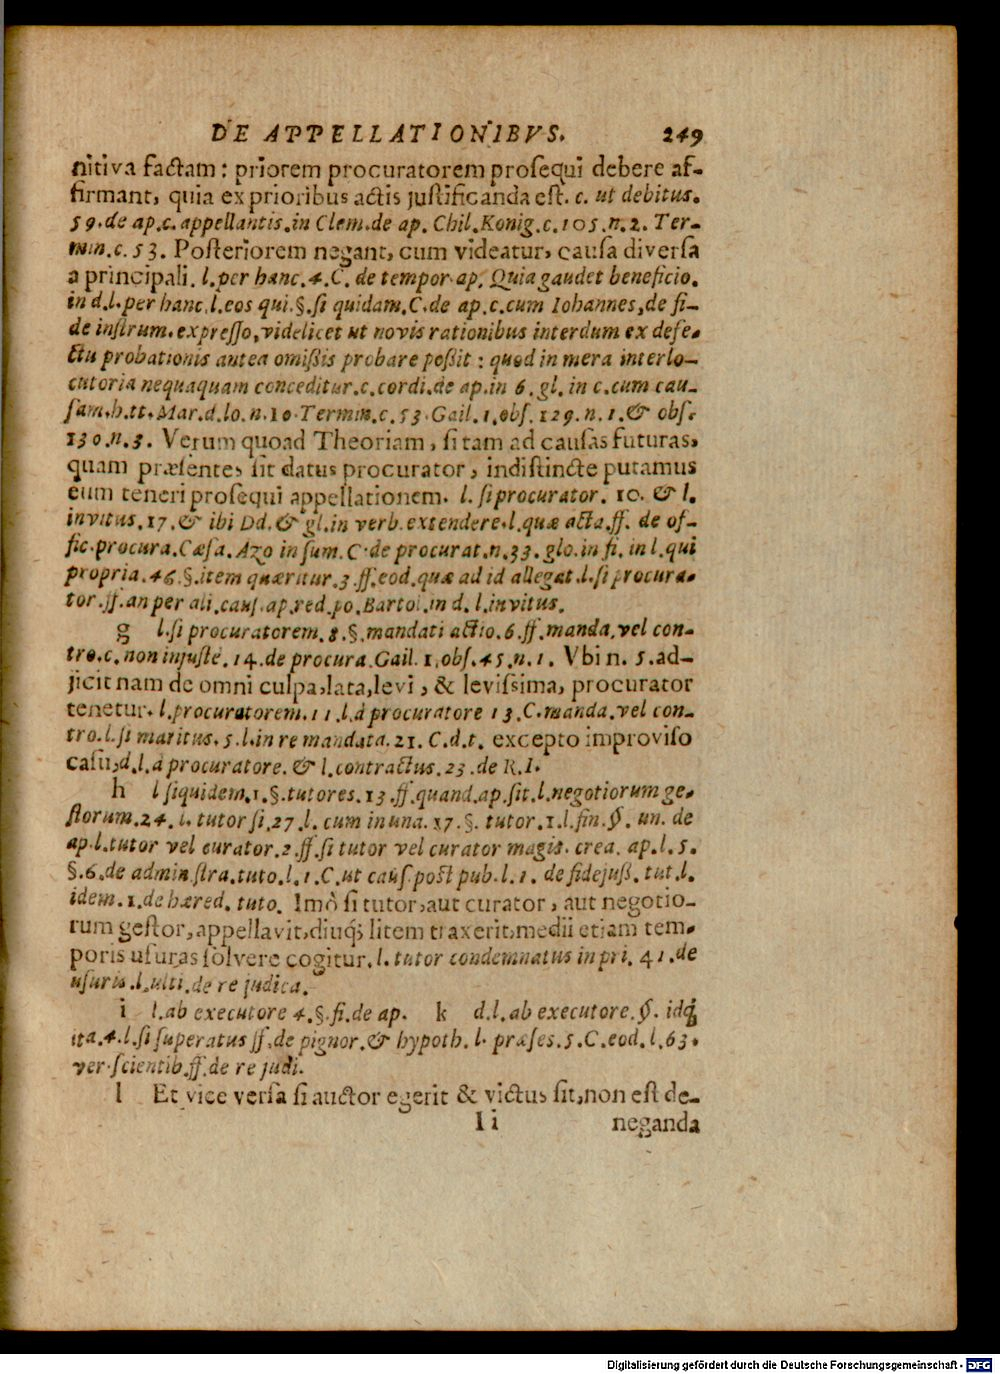 DE APPELLATIONIBVS. 249
nitiva factam: priorem procuratorem prosequi debere af-
firmant, quia ex prioribus actis justificanda est. c. ut debitus.
59. de ap. c. appellantis. in Clem. de ap. Chil. Konig. c. 105. n. 2. Ter-
min. c. 53. Posteriorem negant, cum videatur, causa diversa
a principali. l. per hanc. 4. C. de tempor. ap. Quia gaudet beneficio.
in d. l. per hanc. l. eos qui. §. si quidam. C. de ap. c. cum Iohannes, de fi-
de instrum. expresso, videlicet ut novis rationibus interdum ex defe-
ctu probationis antea omißis probare poßit: quod in mera interlo-
cutoria nequaquam conceditur. c. cordi. de ap. in 6. gl. in c. cum cau-
sam. h. tt. Mar. d. lo. n. 10. Termin. c. 53. Gail. 1. obs. 129. n. 1. & obs.
130. n. 3. Verum quoad Theoriam, si tam ad causas futuras,
quam præsentes sit datus procurator, indistincte putamus
eum teneri prosequi appellationem. l. si procurator. 10. & l.
invitus. 17. & ibi Dd. & gl. in verb. extendere. l. quæ acta. ff. de of-
fic. procura. Cæsa. Azo in sum. C. de procurat. n. 33. glo. in fi. in l. qui
propria. 46. §. item quæritur. 3. ff. eod. quæ ad id allegat. l. si procura-
tor. ff. an per ali. caus. ap. red. po. Bartol. in d. l. invitus.
g l. si procuratorem. 8. §. mandati actio. 6. ff. manda. vel con-
tro. c. non injuste. 14. de procura. Gail. 1. obs. 45. n. 1. Vbi n. 5. ad-
jicit nam de omni culpa, lata, levi, & levissima, procurator
tenetur. l. procuratorem. 11. l. à procuratore 13. C. manda. vel con-
tro. l. si maritus. 5. l. in re mandata. 21. C. d. t. excepto improviso
casu, d. l. à procuratore. & l. contractus. 23. de R. I.
h l siquidem. 1. §. tutores. 13. ff. quand. ap. sit. l. negotiorum ge-
storum. 24. l. tutor si. 27. l. cum in una. 17. §. tutor. 1. l. fin. §. un. de
ap. l. tutor vel curator. 2. ff. si tutor vel curator magis. crea. ap. l. 5.
§. 6. de administra. tuto. l. 1. C. ut caus. post pub. l. 1. de fidejuß. tut. l.
idem. 1. de hæred. tuto. Imò si tutor, aut curator, aut negotio-
rum gestor, appellavit, diuq; litem traxerit, medii etiam tem-
poris usuras solvere cogitur. l. tutor condemnatus in pri. 41. de
usuris. l. ulti. de re judica.
i l. ab executore 4. §. fi. de ap. k d. l. ab executore. §. idq;
ita. 4. l. si superatus ff. de pignor. & hypoth. l. præses. 5. C. eod. l. 63.
ver. scientib. ff. de re judi.
l Et vice versa si auctor egerit & victus sit, non est de-
Ii neganda
Digitalisierung gefördert durch die Deutsche Forschungsgemeinschaft - DFG